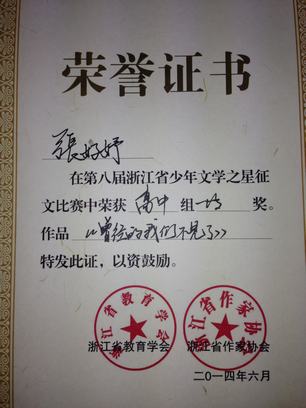 荣誉证书
張
在第八届浙江省少年文学之星征
文比赛中荣获 高中 组 一等 奖。
作品 《曾经的我们不見了》
特发此证，以资鼓励。
浙江省教育学会
浙江省作家协会
浙江省教育学会 浙江省作家协会
二〇一四年六月